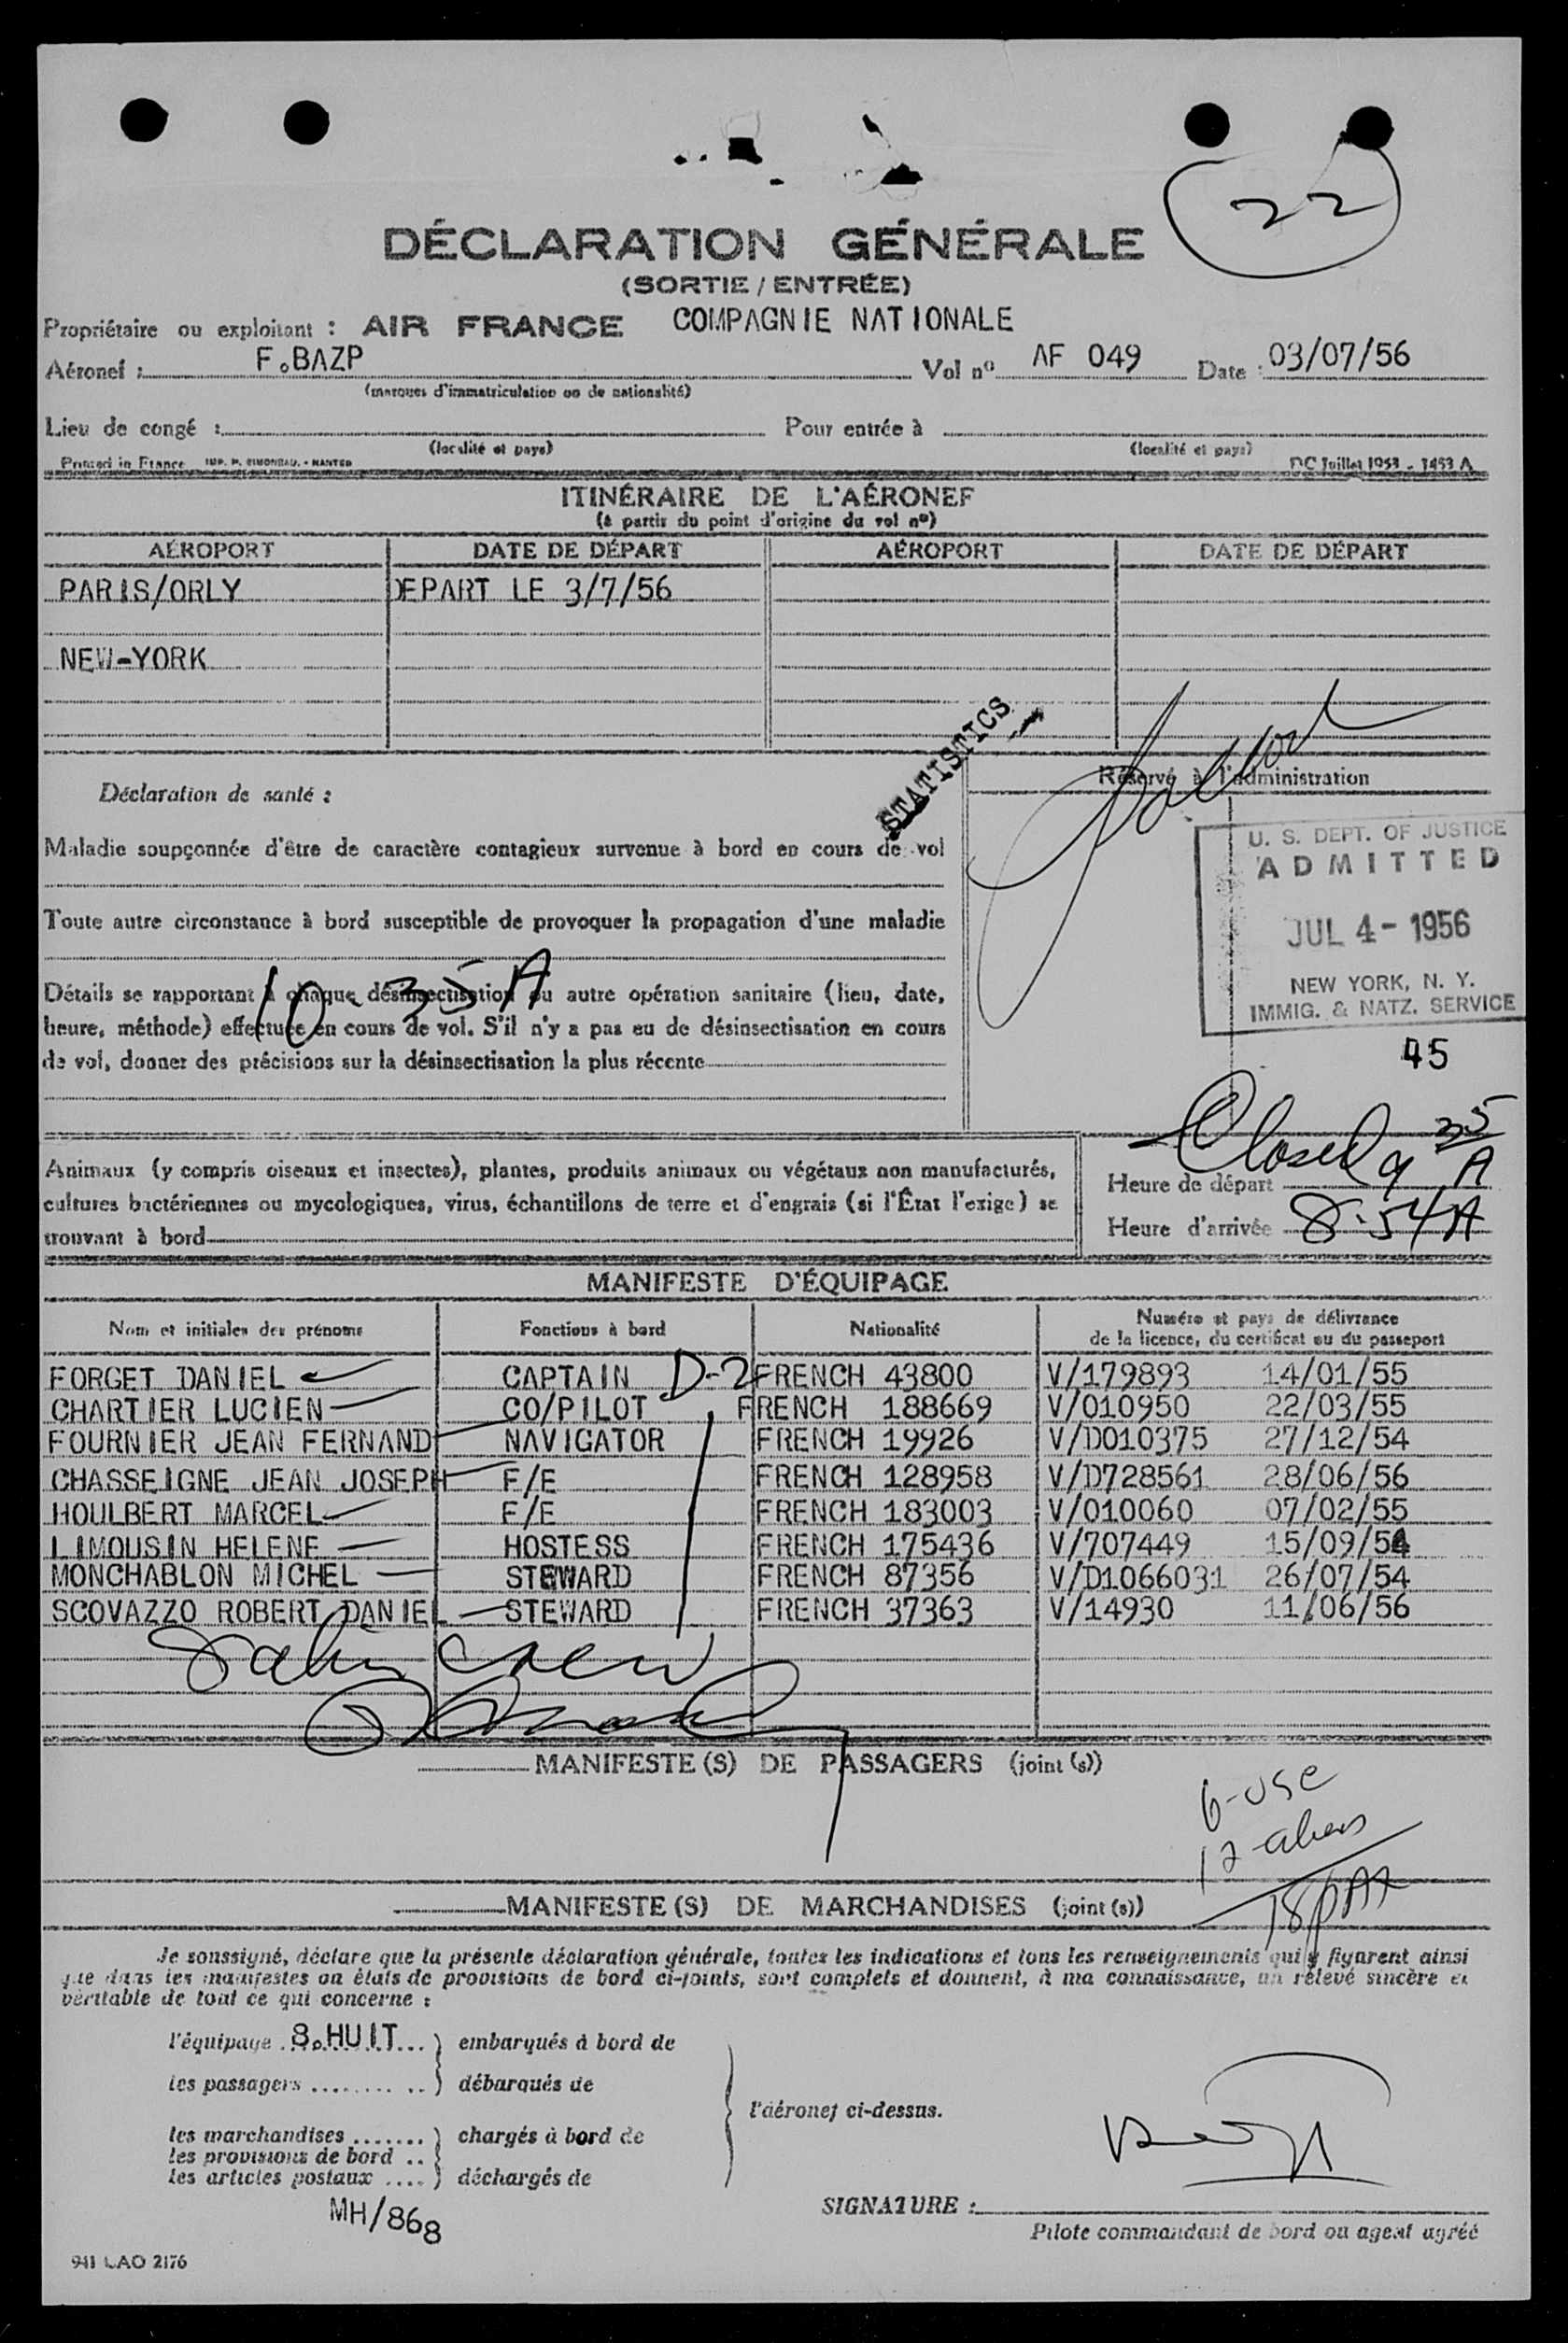 22
DÉCLARATION GÉNÉRALE
(SORTIE / ENTRÉE)
Propriétaire ou exploitant : AIR FRANCE COMPAGNIE NATIONALE
Aéronef : F.BAZP Vol nº AF 049 Date : 03/07/56
(marques d'immatriculation ou de nationalité)
Lieu de congé : Pour entrée à
(localité et pays) (localité et pays)
Printed in France IMP. P. SIMONEAU. - NANTES DC Juillet 1953 - 1453 A
ITINÉRAIRE DE L'AÉRONEF
(à partir du point d'origine du vol nº)
AÉROPORT DATE DE DÉPART AÉROPORT DATE DE DÉPART
PARIS/ORLY DEPART LE 3/7/56
NEW-YORK
STATISTICS
Réservé à l'administration
Déclaration de santé :
U. S. DEPT. OF JUSTICE
ADMITTED
JUL 4 - 1956
NEW YORK, N. Y.
IMMIG. & NATZ. SERVICE
45
Maladie soupçonnée d'être de caractère contagieux survenue à bord en cours de vol
Toute autre circonstance à bord susceptible de provoquer la propagation d'une maladie
10-35 A
Détails se rapportant à chaque désinsectisation ou autre opération sanitaire (lieu, date,
heure, méthode) effectuée en cours de vol. S'il n'y a pas eu de désinsectisation en cours
de vol, donner des précisions sur la désinsectisation la plus récente
Closed 9 35 A
Animaux (y compris oiseaux et insectes), plantes, produits animaux ou végétaux non manufacturés,
cultures bactériennes ou mycologiques, virus, échantillons de terre et d'engrais (si l'État l'exige) se
trouvant à bord
Heure de départ
Heure d'arrivée 8-54A
MANIFESTE D'ÉQUIPAGE
Nom et initiales des prénoms Fonctions à bord Nationalité Numéro et pays de délivrance
de la licence, du certificat ou du passeport
FORGET DANIEL CAPTAIN D-2 FRENCH 43800 V/179893 14/01/55
CHARTIER LUCIEN CO/PILOT FRENCH 188669 V/010950 22/03/55
FOURNIER JEAN FERNAND NAVIGATOR FRENCH 19926 V/D010375 27/12/54
CHASSEIGNE JEAN JOSEPH F/E FRENCH 128958 V/D728561 28/06/56
HOULBERT MARCEL F/E FRENCH 183003 V/010060 07/02/55
LIMOUSIN HELENE HOSTESS FRENCH 175436 V/707449 15/09/54
MONCHABLON MICHEL STEWARD FRENCH 87356 V/D1066031 26/07/54
SCOVAZZO ROBERT DANIEL STEWARD FRENCH 37363 V/14930 11/06/56
crew
MANIFESTE(S) DE PASSAGERS (joint (s))
6-USC
12-aliens
18 PAX
MANIFESTE(S) DE MARCHANDISES (joint (s))
Je soussigné, déclare que la présente déclaration générale, toutes les indications et tous les renseignements qui y figurent ainsi
que dans les manifestes ou états de provisions de bord ci-joints, sont complets et donnent, à ma connaissance, un relevé sincère et
véritable de tout ce qui concerne :
l'équipage 8.HUIT embarqués à bord de
les passagers débarqués de
l'aéronef ci-dessus.
les marchandises chargés à bord de
les provisions de bord
les articles postaux déchargés de
MH/868
SIGNATURE :
Pilote commandant de bord ou agent agréé
941 LAO 2176